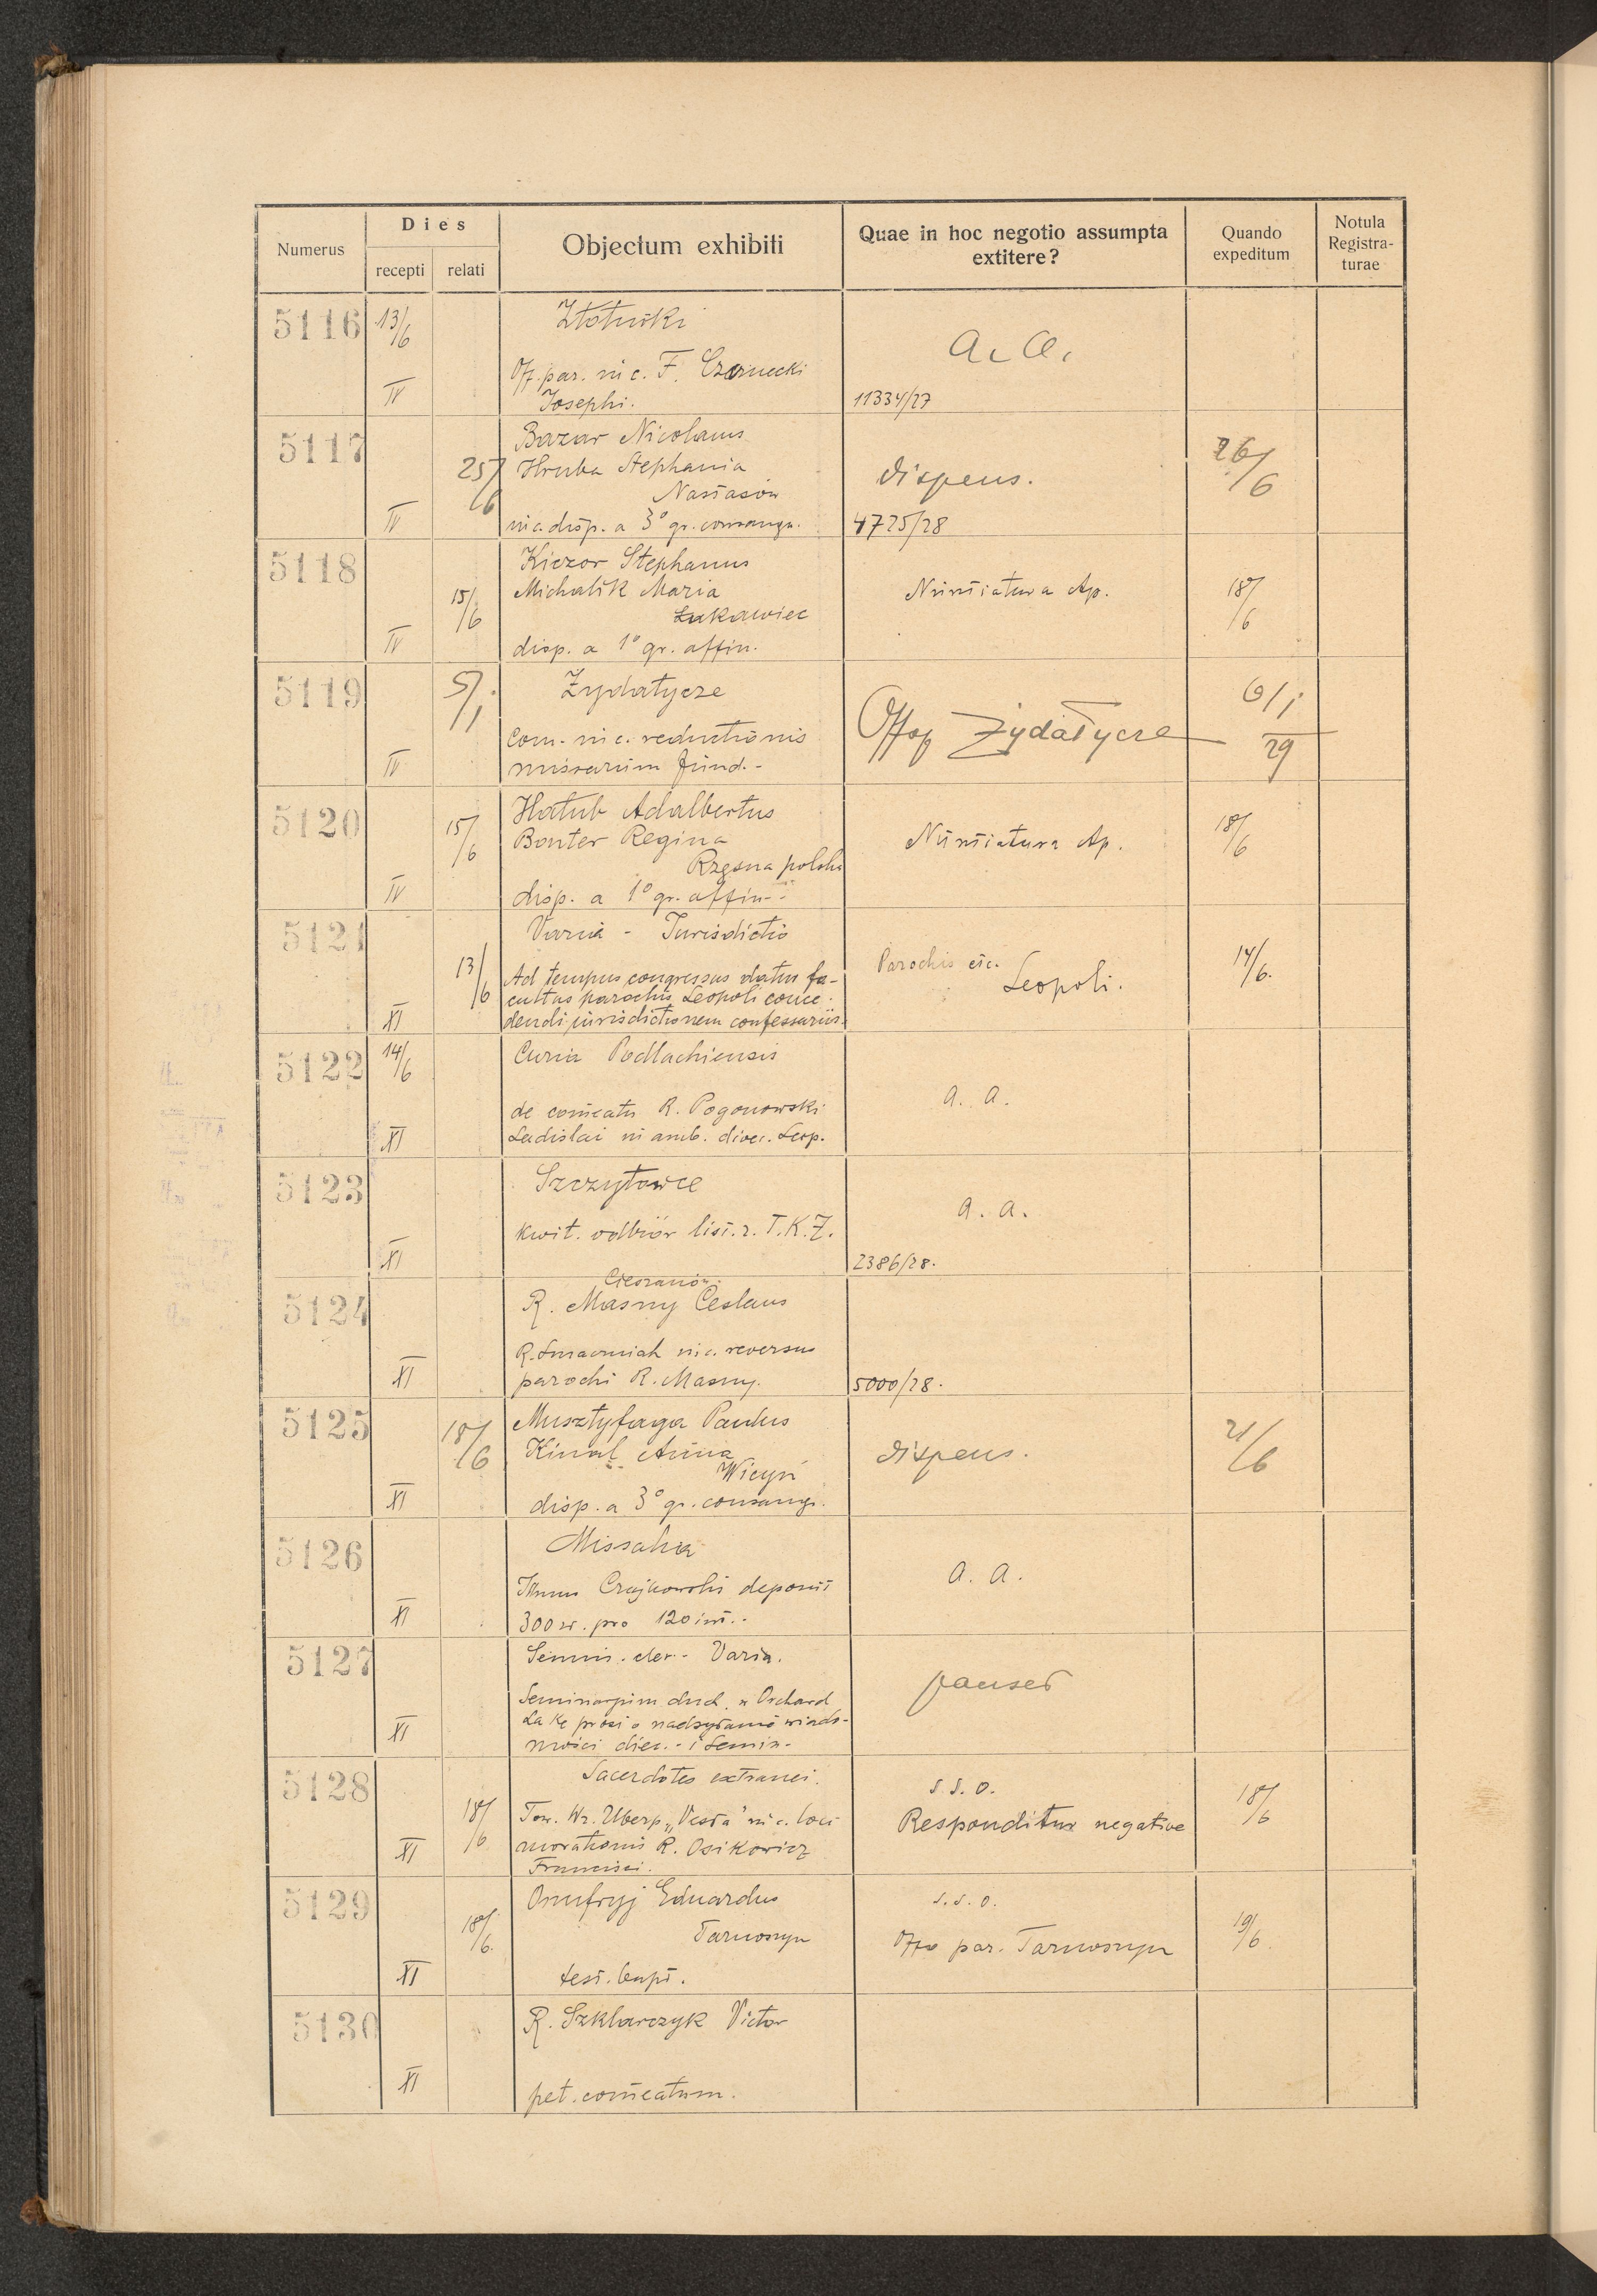 Dies
Numerus
recepti relati
Objectum exhibiti
Quae in hoc negotio assumpta
extitere?
Quando
expeditum
Notula
Registra-
turae
5116 13/6
IV
Off. par. nic. F. Czarnecki
Josephi.
a. a.
11334/27
5117
IV
25/6
Bazar Nicolaus
Hruba Stephania
Nastasów
nic. disp. a 3° gr. consangu.
dispens.
4725/28
26/6
5118
IV
15/6
Kiczor Stephanus
Michalik Maria
Łukawiec
disp. a 1° gr. affin.
Nuntiatura Ap.
18/6
5119
IV
5/1
Żydatycze
com. nic. reductionis
missarum fund.-
Żydatycze
6/1
29
5120
IV
15/6
Hałub Adalbertus
Bonter Regina
Rzęsna polska
disp. a 1° gr. affin.-
Nuntiatura Ap.
18/6
5121
XI
13/6
Varia - Jurisdictio
Ad tempus congressus datur fa-
cultas parochis Leopoli conce-
dendi jurisdictionem confessariis.
Parochis etc.
Leopoli.
14/6.
5122 14/6
XI
Curia Podlachiensis
de comeatu R. Pogonowski
Ladislai in amb. dioec. Leop.
a. a.
5123
XI
Szczytowce
kwit. odbiór list. z. T.K.Z.
a. a.
2386/28.
5124
XI
Cieszanów.
R. Masny Ceslaus
nic. reversus
parochi R. Masny.
5000/28.
5125
XI
18/6
Musztyfaga Paulus
Kinal Anna
Wicyń
disp. a 3° gr. consangu.
dispens.
21/6
5126
XI
Missalia
Czajkowski deposuit
300 zł. pro 120 int..
a. a.
5127
XI
Semin. cler.- Varia.
Seminarjum duch. w Orchard
Lake prosi o nadsyłanie wiado-
mości diec. - i semin.-
5128
XI
18/6
Sacerdotes extranei.
Tow. Wz. Ubezp. „Vesta" nic. loci
morationis R. Osikowicz
Francisci.
s. s. o.
Responditur negative
18/6
5129
XI
18/6.
Onufryj Eduardus
Tarnoszyn
test. bapt.
s. s. o.
Offo par. Tarnoszyn
19/6.
5130
XI
R. Szklarczyk Victor
pet. comeatum.